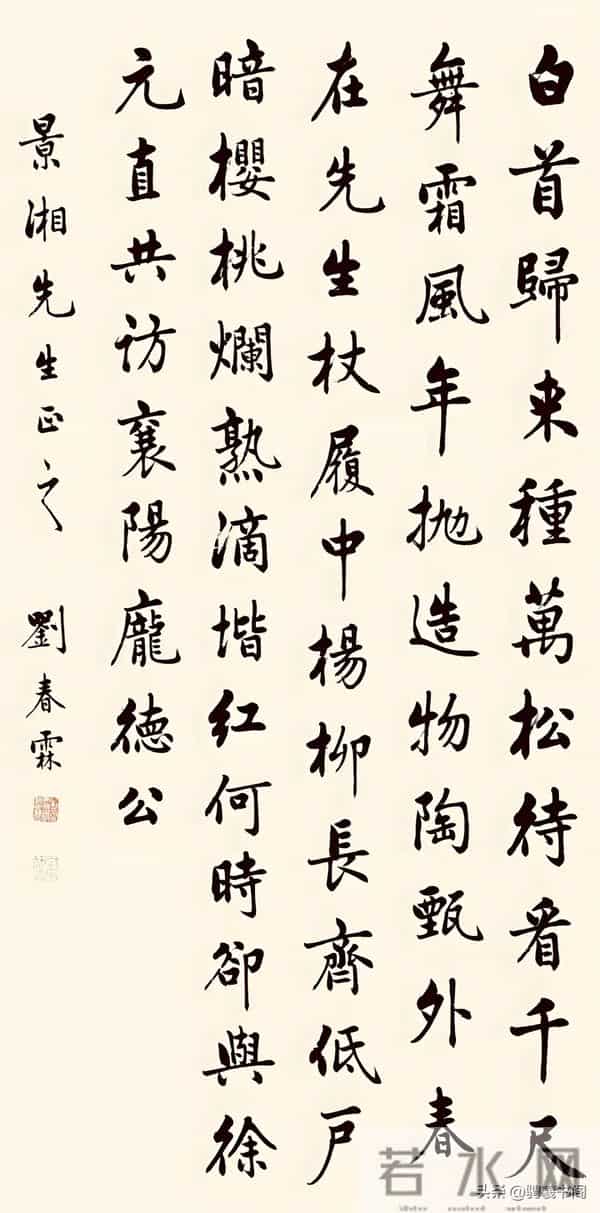 白首歸来種萬松待看千尺
舞霜風年抛造物陶甄外春
在先生杖履中楊柳長齊低户
暗櫻桃爛熟滴堦红何時卻與徐
元直共访襄陽龐徳公
景湘先生正之 劉春霖
若水网
头条